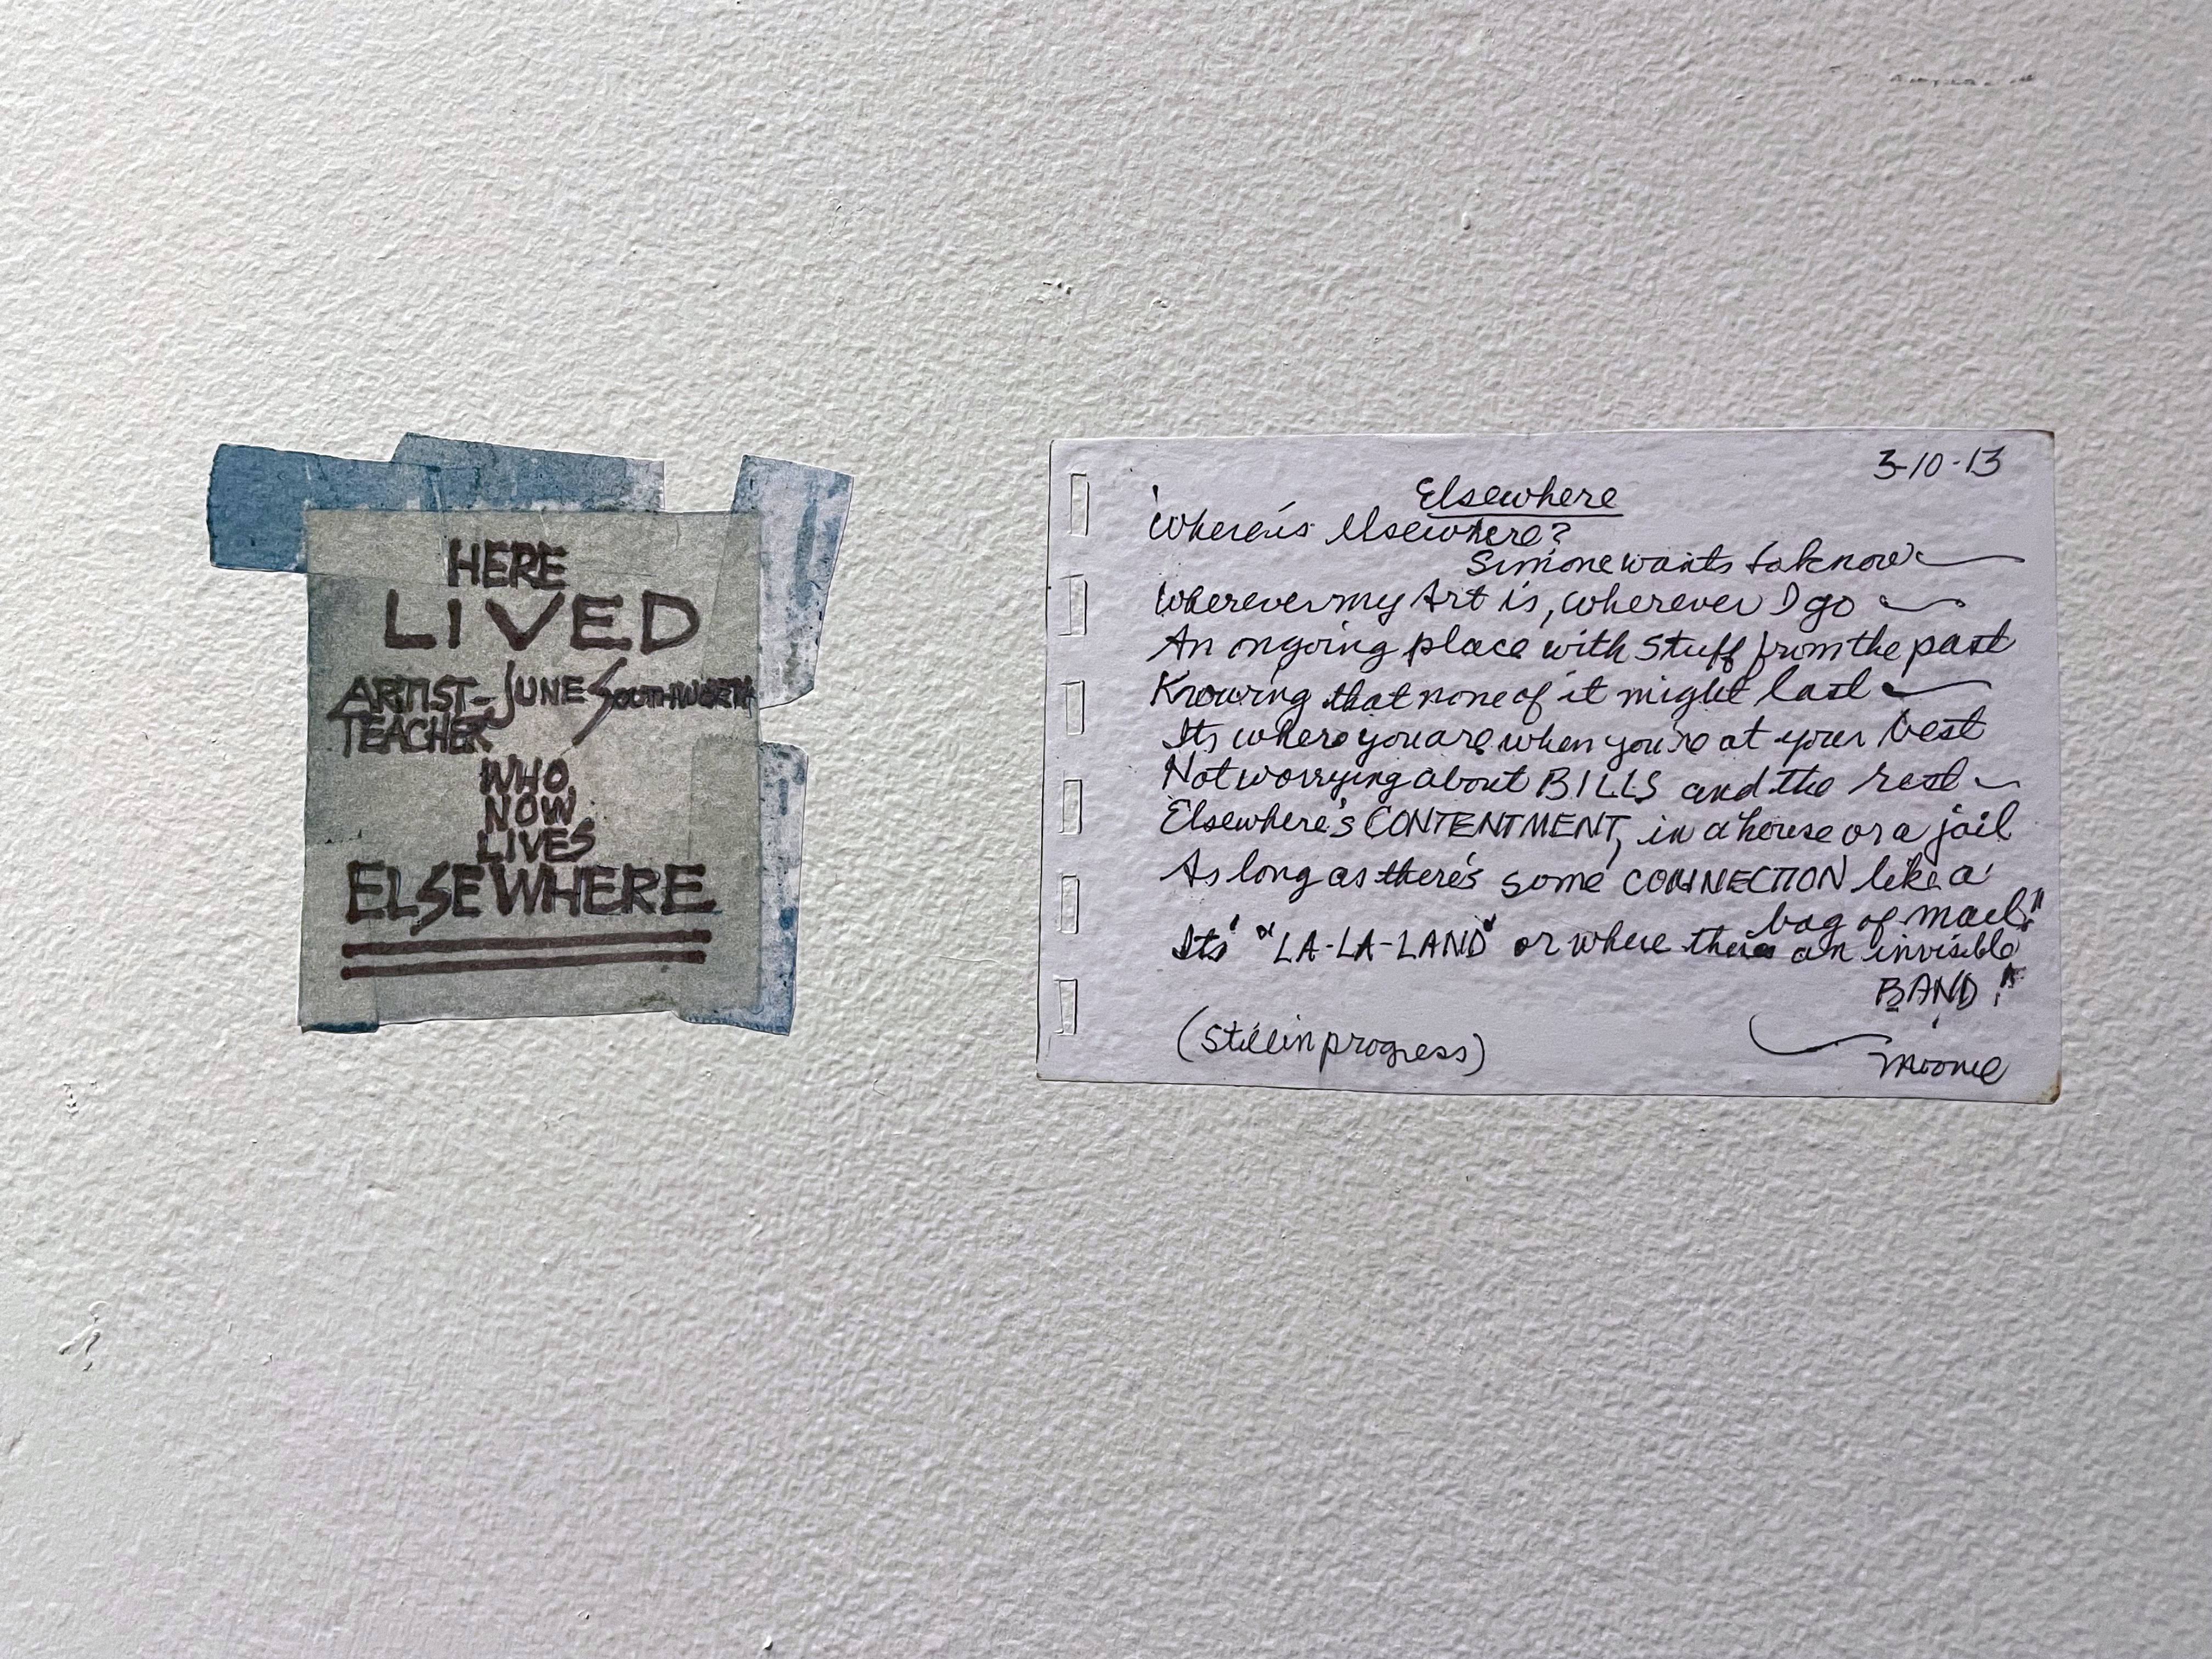 HERE
LIVED
ARTIST- JUNE SOUTHWORTH
TEACHER
WHO
NOW
LIVES
ELSEWHERE
3-10-13
Elsewhere
'Where is elsewhere?
Simone wants to know
Wherever my Art is, wherever I go
An ongoing place with stuff from the past
Knowing that none of it might last
Its where you are when you're at your best
Not worrying about BILLS and the rest
Elsewhere's CONTENTMENT, in a house or a jail
As long as there's some CONNECTION like a
bag of mail!"
Its' "LA-LA-LAND" or where theres an invisible
BAND!"
(Still in progress)